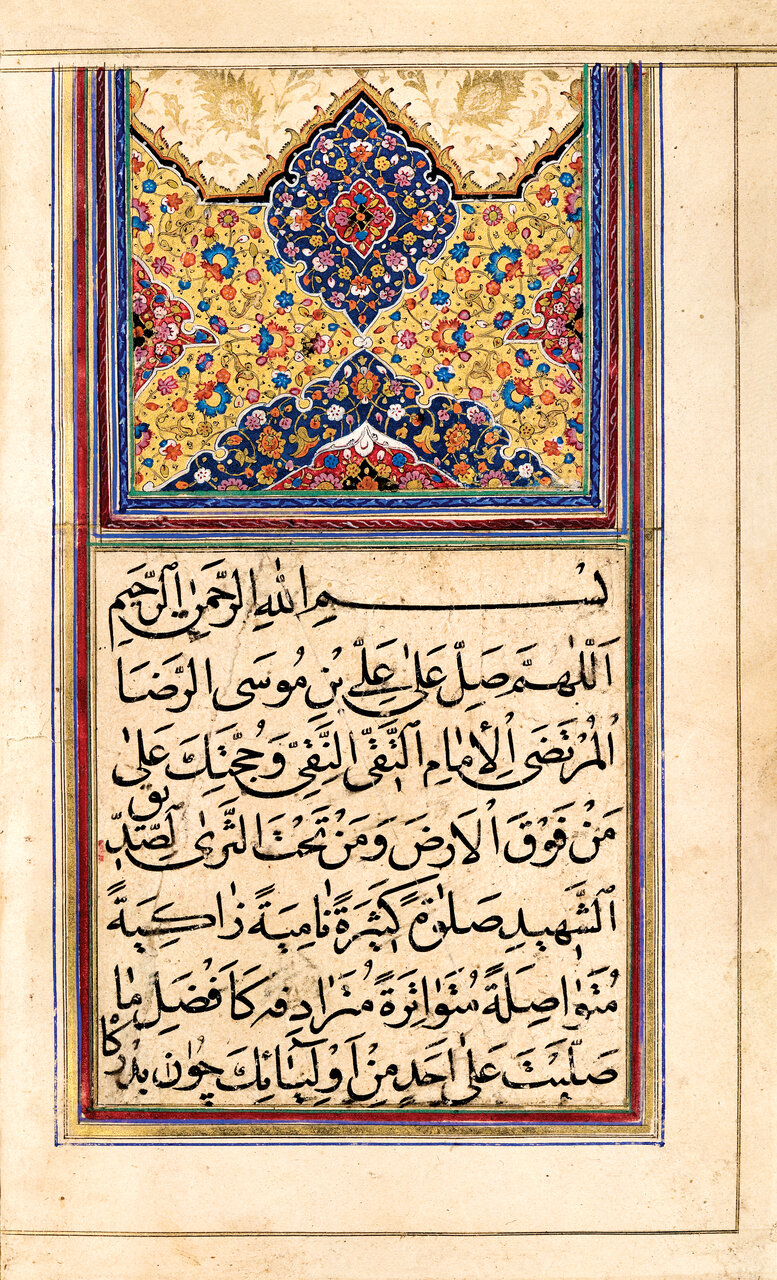 بسم الله الرحمن الرحیم
اَللّٰهُمَّ صَلِّ عَلیٰ عَلِیِّ بْنِ مُوسَی الرَّضَا
الْمُرْتَضَی الْاِمٰامِ التَّقیِّ النَّقیِّ وَحُجَّتِكَ عَلیٰ
مَنْ فَوْقَ الْارَضَ وَمَنْ تَحْتَ الثَّریٰ الصِّدّیق
الشَّهیدِ صَلوٰةً کَثیٖرَةً نٰامِیَةً زٰاکِیَةً
مُتَوٰاصِلَةً مُتَوٰاتِرَةً مُتَرٰادِفه کَاَفْضَلِ مٰا
صَلَّیْتَ عَلیٰ اَحَدٍ مِنْ اَوْلِیٰائِكَ چوٰن بدرکا